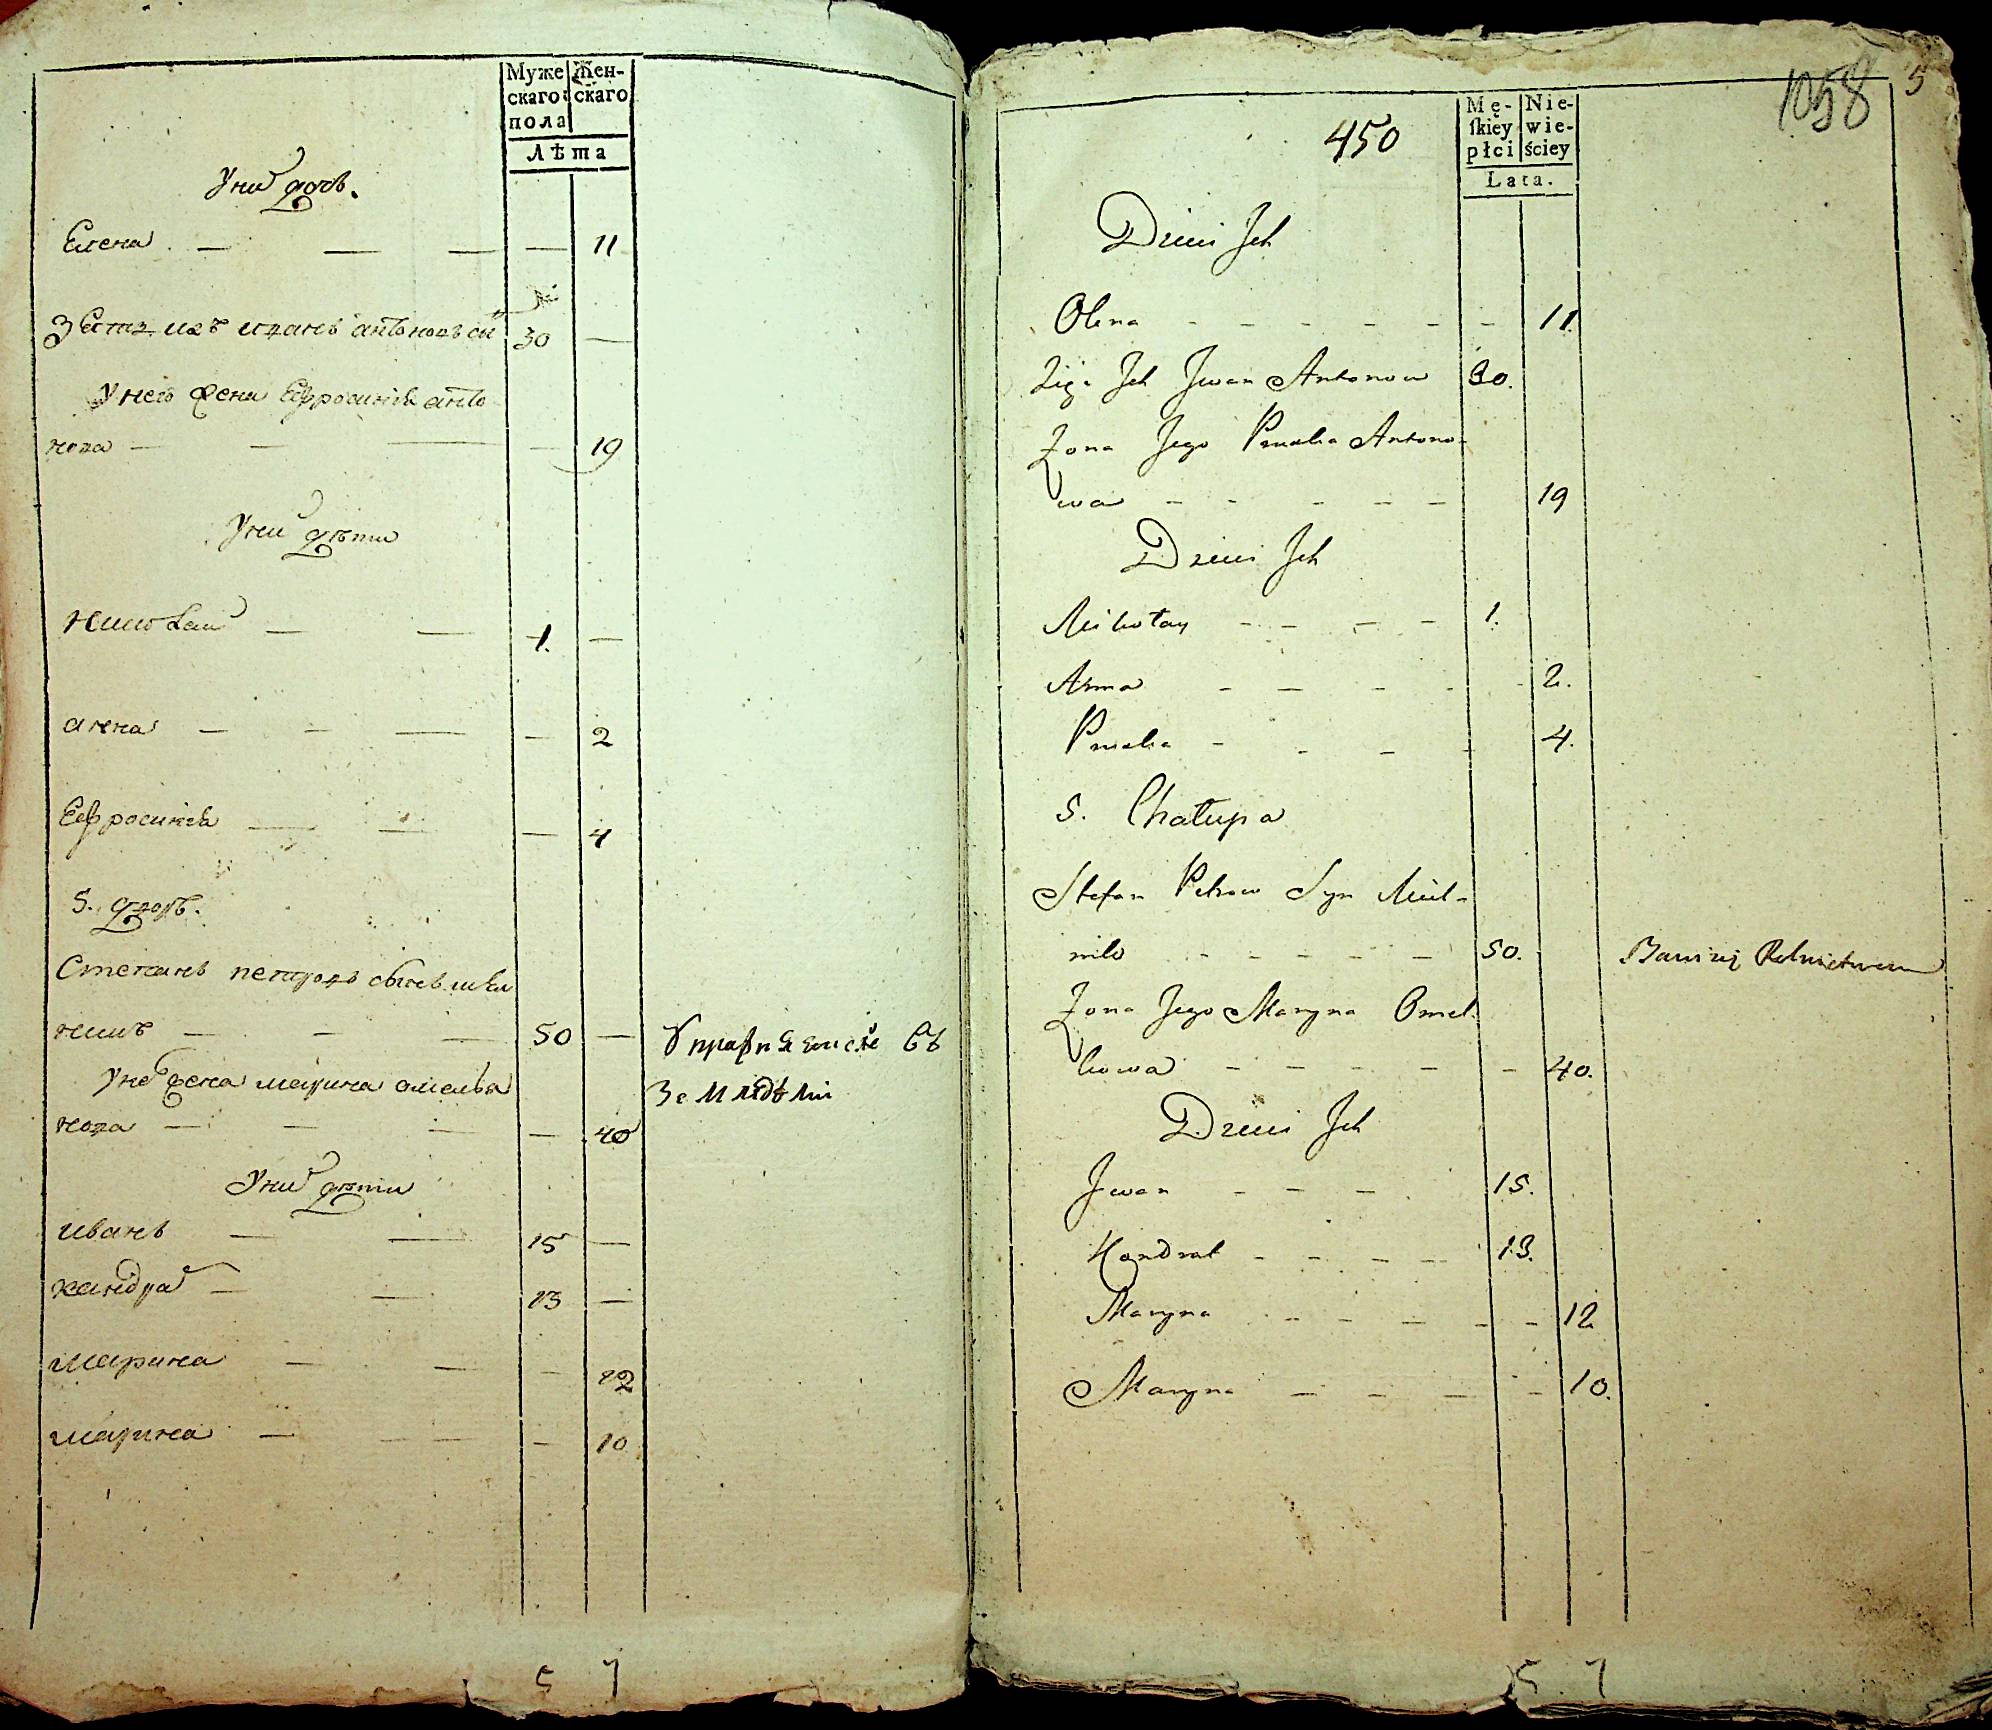 Муже
скаго
пола
Жен-
скаго
Лѣта
У них дочь.
Елена — — — — 11
Зеть ихъ иванъ антоновъ сы 30 —
У него жена Ефросиніа анто
нова — — — — 19
У них дѣти
николай — — 1. —
анна — — — — 2
Ефросиніа — — — 4
5. дворъ.
Степанъ петровъ сынъ
никъ — — — 50 — Упражняется въ
Земледѣліи
У не жена марина омелья
нова — — — — 40
У них дѣти
иванъ — — 15 —
кандра — — 13 —
марина — — — 12
марина — — — 10
5 7
1058 5
450
Mę-
ſkiey
płci
Nie-
wie-
ściey
Lata.
Dzieci Jch
Olena - - - - - - 11.
Zięć Jch Jwan Antonow 30.
Żona Jego Pruzka Antono-
wa - - - - - 19
Dzieci Jch
Mikołay - - - - 1.
Anna - - - - - 2.
Pruzka - - - - 4.
5. Chałupa
Stefan Petrow Syn
- - - - - - 50. Bawi się Rolnictwem
Żona Jego Maryna Omel-
kowa - - - - - - 40.
Dzieci Jch
Jwan - - - 15.
Kondrat - - - - 13.
Maryna - - - - - - 12
Maryna - - - - 10.
5 7